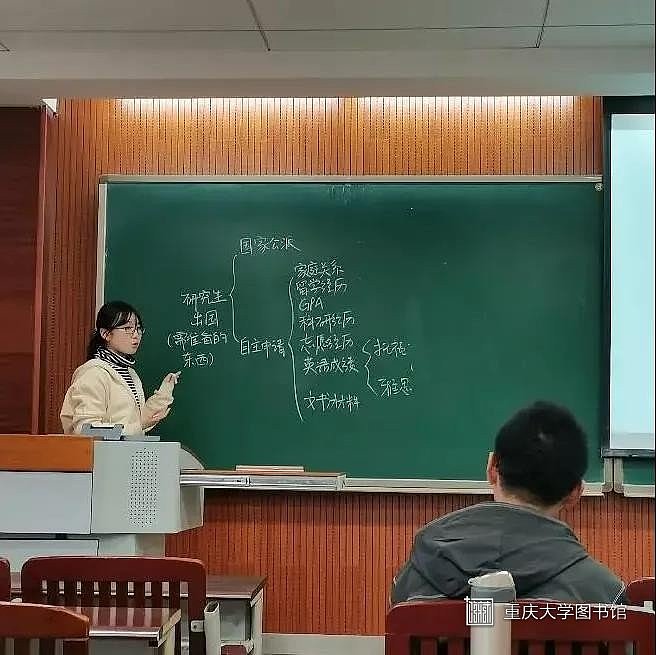 国家公派
研究生
出国
(需准备的
东西)
自主申请
家庭关系
留学经历
GPA
科研经历
志愿经历
英语成绩
托福
雅思
文书材料
重庆大学图书馆